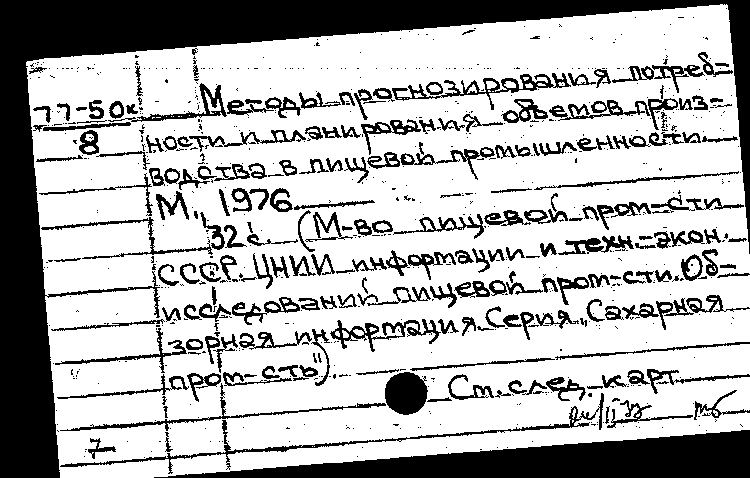 77-50к
8
Методы прогнозирования потреб-
ности и планирования объемов произ-
водства в пищевой промышленности.
М., 1976.
32 с. (М-во пищевой пром-сти
СССР. ЦНИИ информации и техн.-экон.
исследований пищевой пром-сти. Об-
зорная информация. Серия „Сахарная
пром-сть").
Ст. след. карт
7